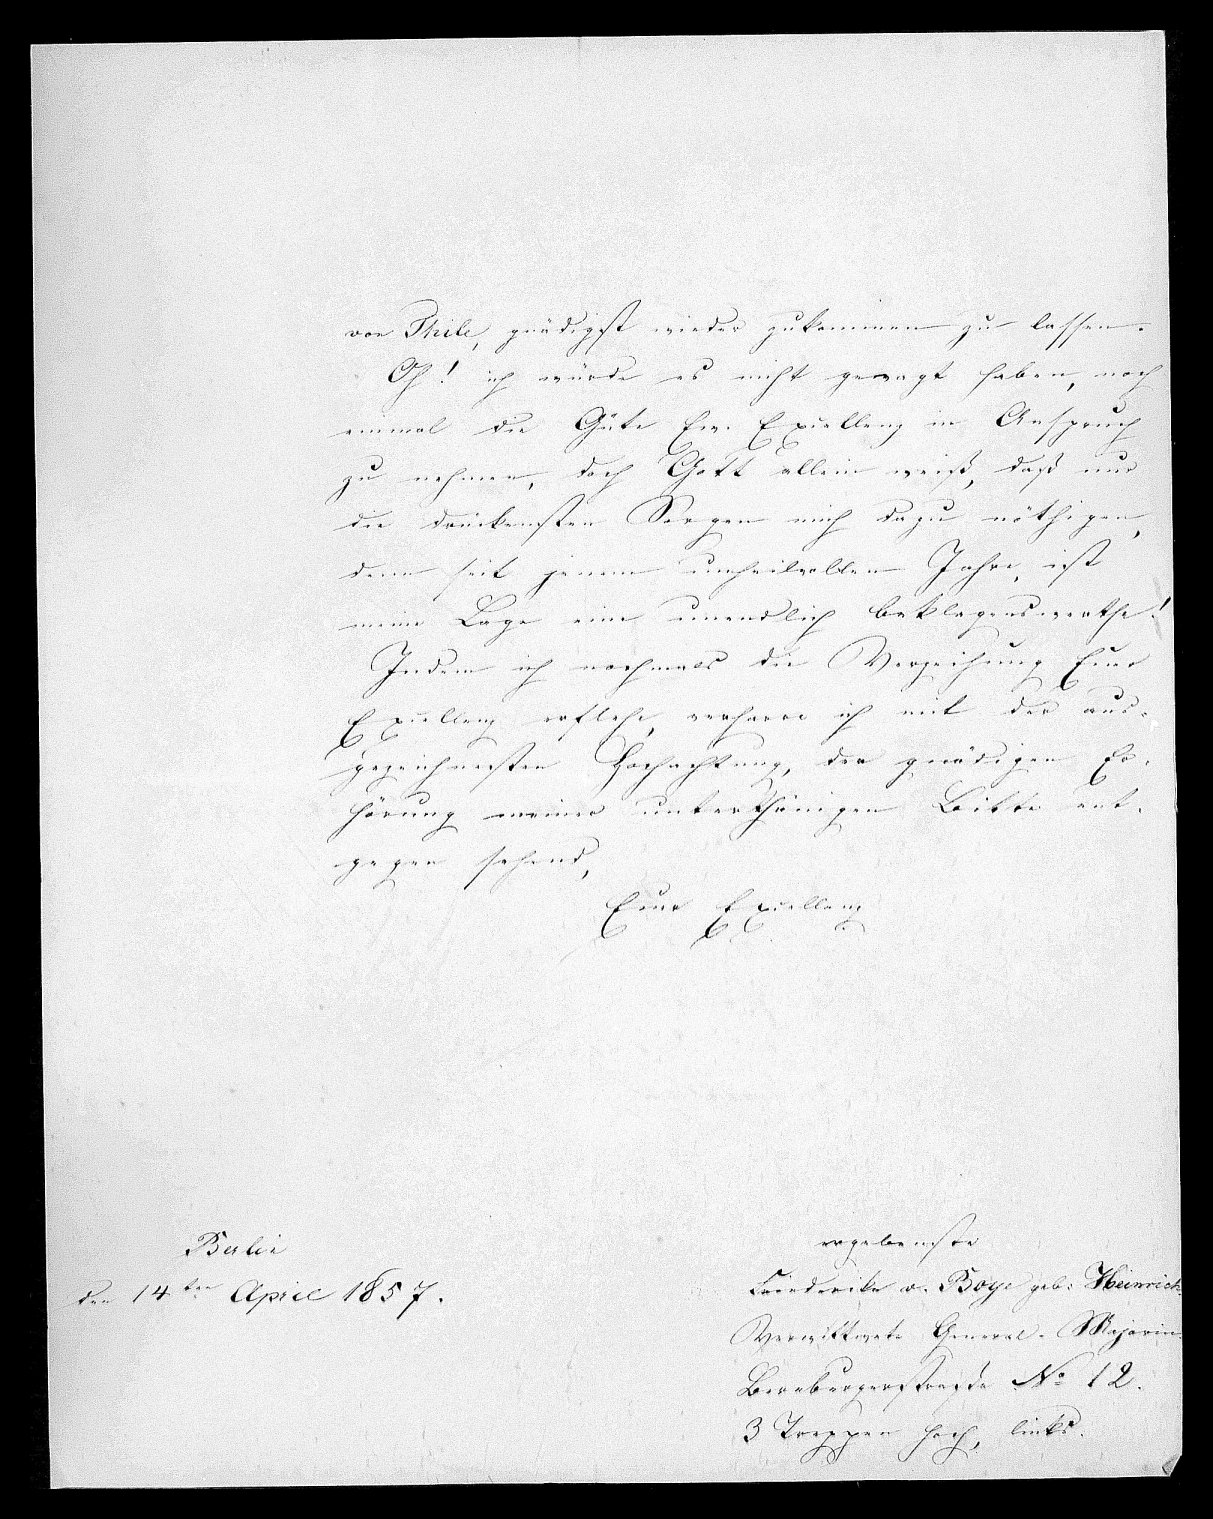 von Thile, gnädigst wieder zukommen zu lassen.
Oh! ich würde es nicht gewagt haben, noch
einmal die Güte Ew. Exellenz in Anspruch
zu nehmen, doch Gott allein weiß, daß nur
die drückensten Sorgen mich dazu nöthigen,
denn seit jenem unheilvollen Jahre, ist
meine Lage eine unendlich beklagenswerthe!
Indem ich nochmals die Verzeihung Euer
Exellenz erflehe, verharre ich mit der aus-
gezeichnesten Hochachtung, der gnädigen Er-
hörung meiner unterthänigen Bitte ent-
gegen sehend,
Euer Exellenz
ergebenste
Friederike v. Boye geb: Heinrich.
Verwittwete General-Majorin.
Bernburgerstraße No 12.
3 Treppen hoch, links.
Berlin
den 14ten April 1857.